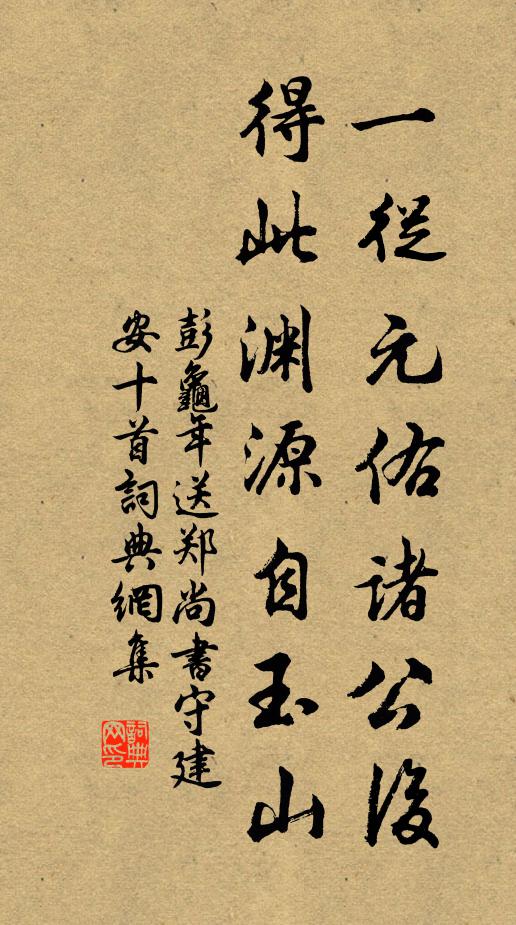 一從元佑諸公後
得此渊源自玉山
彭龜年送郑尚書守建
安十首詞典網集
詞典网印